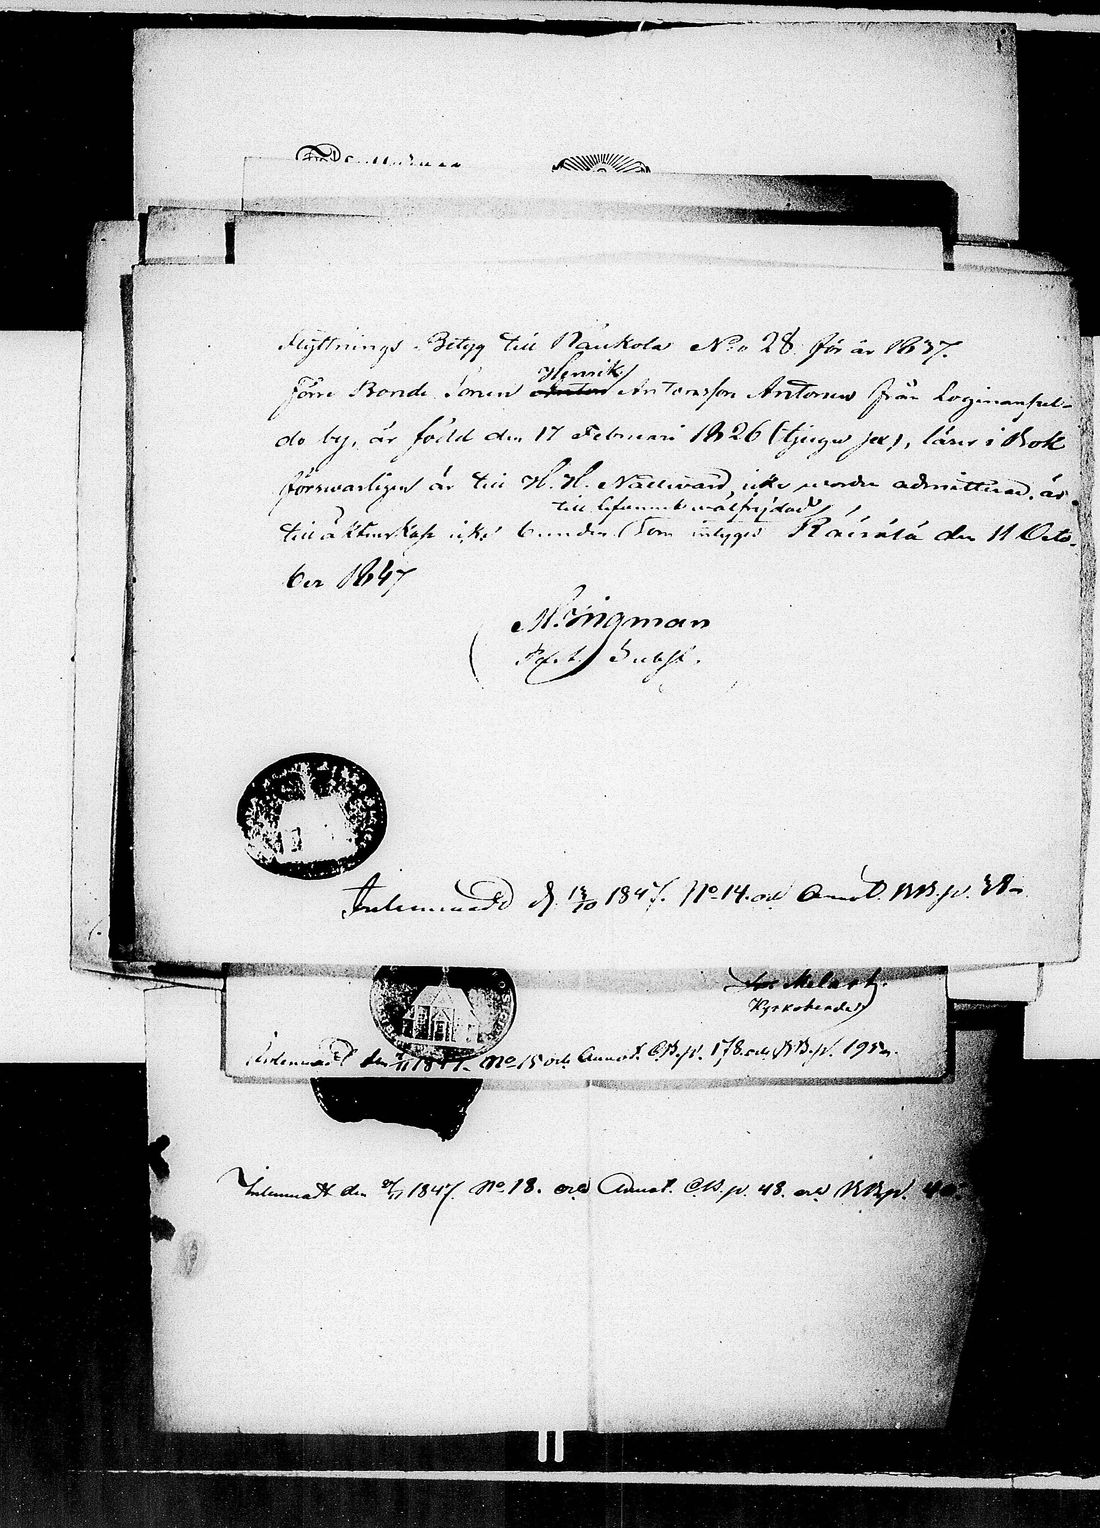 Flyttnings-Betyg till Räukola No 28 för år 1847.
Förre Bonde Sonen Henrik Antonsson Antonen från Loginanpel-
do by, är född den 17 Februari 1826 (tjugu sex), läser i Bok
försvarligen är till H. H. Nattvard icke worden admitterad, är
till lefvernet wälfrejdad
till äktenskap icke bunden; Som intygas Räisälä den 11 Octo-
ber 1847
M. Wigman
Subst.
Inlemnadt d. 13/10 1847. No 14. och Annot. BB. p. 38
Kyrkoherde
Inlemnadt den 1847. No 15 och Annot. C.B. p. 178. och BB. p. 195
Inlemnadt den 1847. No 18. och Annot. C.B. p. 48. och BB. p.